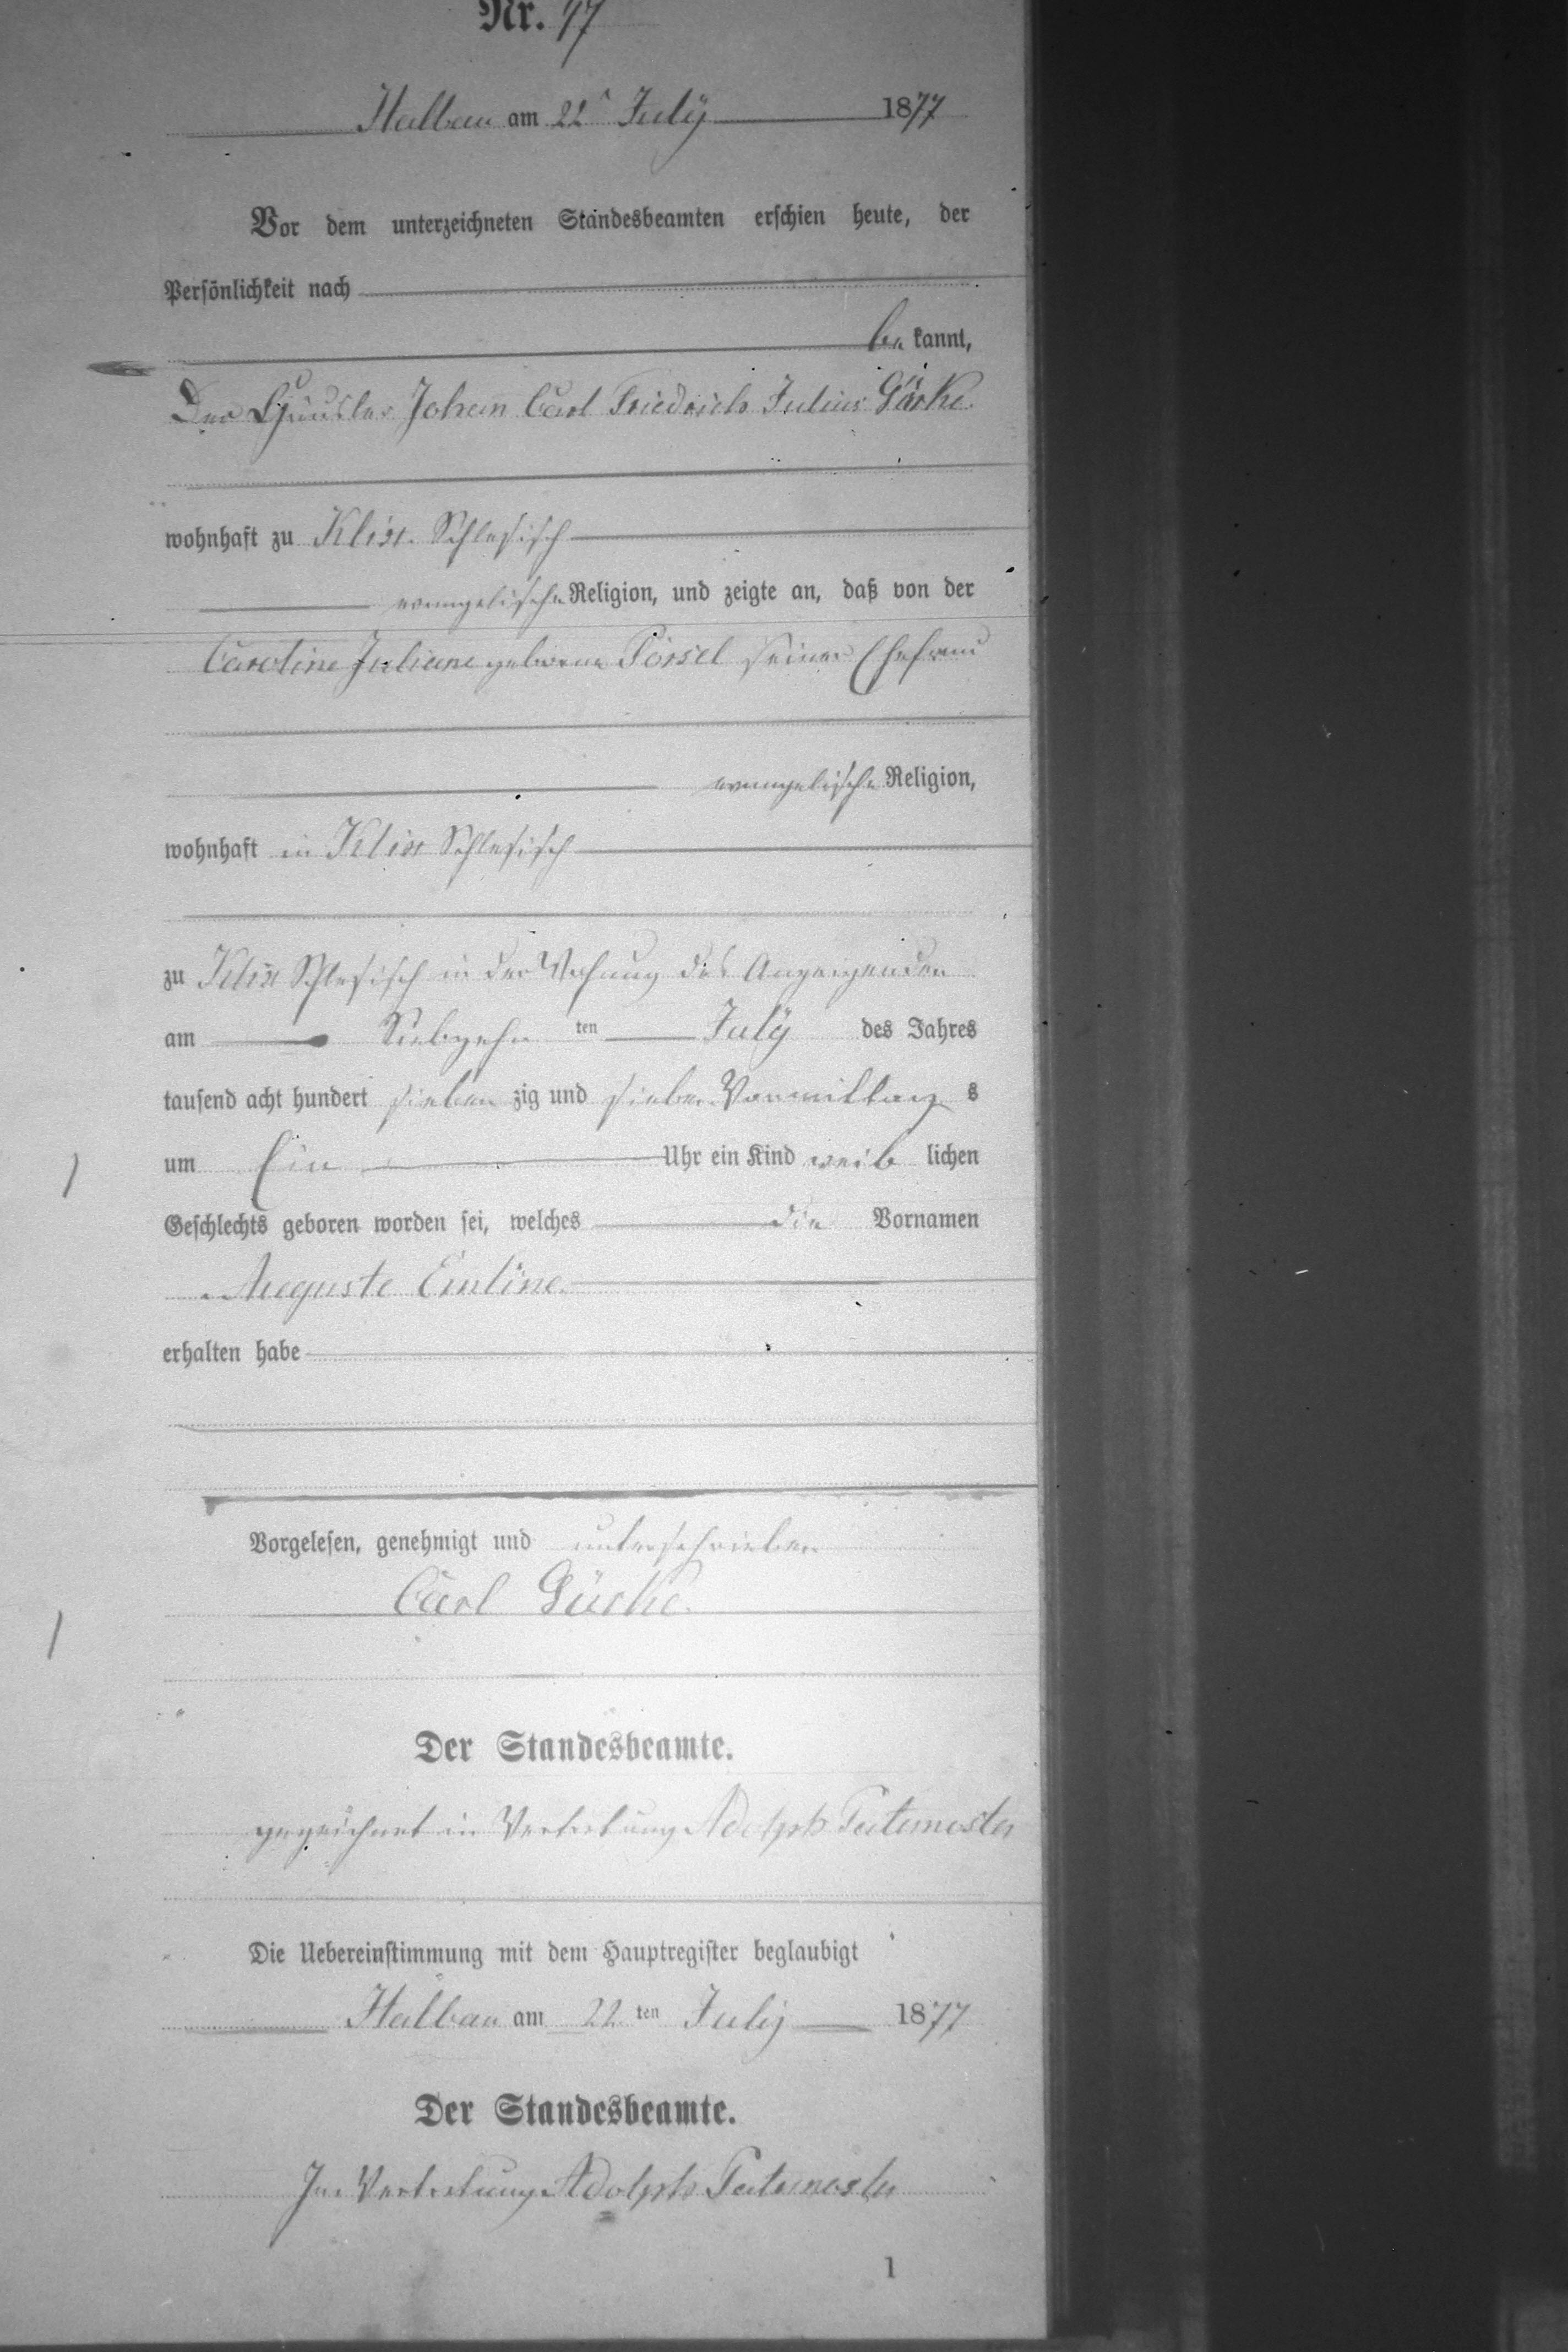 Nr. 47
Halbau am 22 July 1877
Vor dem unterzeichneten Standesbeamten erschien heute, der
Persönlichkeit nach
be kannt,
Der Häusler Johan Carl Friedrich Julius
wohnhaft zu Klix Schlesisch
evangelischer Religion, und zeigte an, daß von der
Caroline Juliane geborne seiner Ehefrau
evangelische Religion,
wohnhaft in Klix Schlesisch
zu Klix Schlesisch in der Wohnung des Anzeigenden
am Siebzehn ten July des Jahres
tausend acht hundert sieben zig und sieben Vormittag s
um Ein Uhr ein Kind weib lichen
Geschlechts geboren worden sei, welches die Vornamen
Auguste
erhalten habe
Vorgelesen, genehmigt und unterschrieben
Carl
Der Standesbeamte.
gezeichnet in Vertretung Adolph
Die Uebereinstimmung mit dem Hauptregister beglaubigt
Halbau am 22 ten July 1877
Der Standesbeamte.
In Vertretung Adolph
1